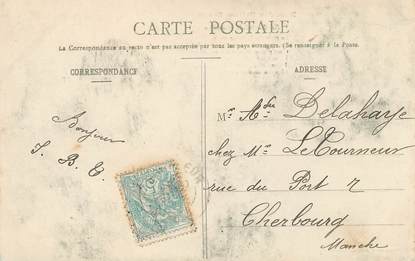 CARTE POSTALE
La Correspondance au recto n'est pas acceptée par tous les pays étrangers. (Se renseigner à la Poste.
CORRESPONDANCE
ADRESSE
Bonjour
J. B. C.
Mr Delahaye
chez Mr LeTourneur
rue du Port 7
Cherbourg
Manche